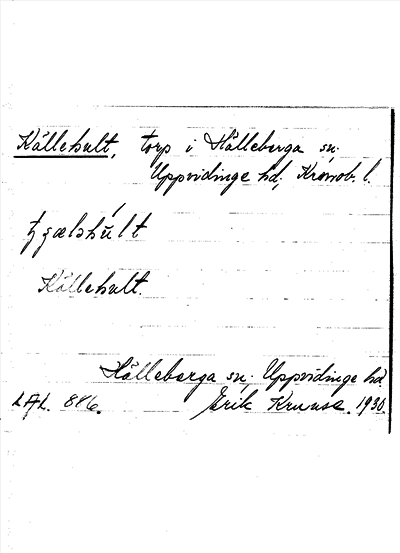 Källehult, torp i Hälleberga sn.
Uppvidinge hd, Kronob. l.
Källehult.
Hälleberga sn, Uppvidinge hd.
LAL. 886. Erik Kruuse. 1930.